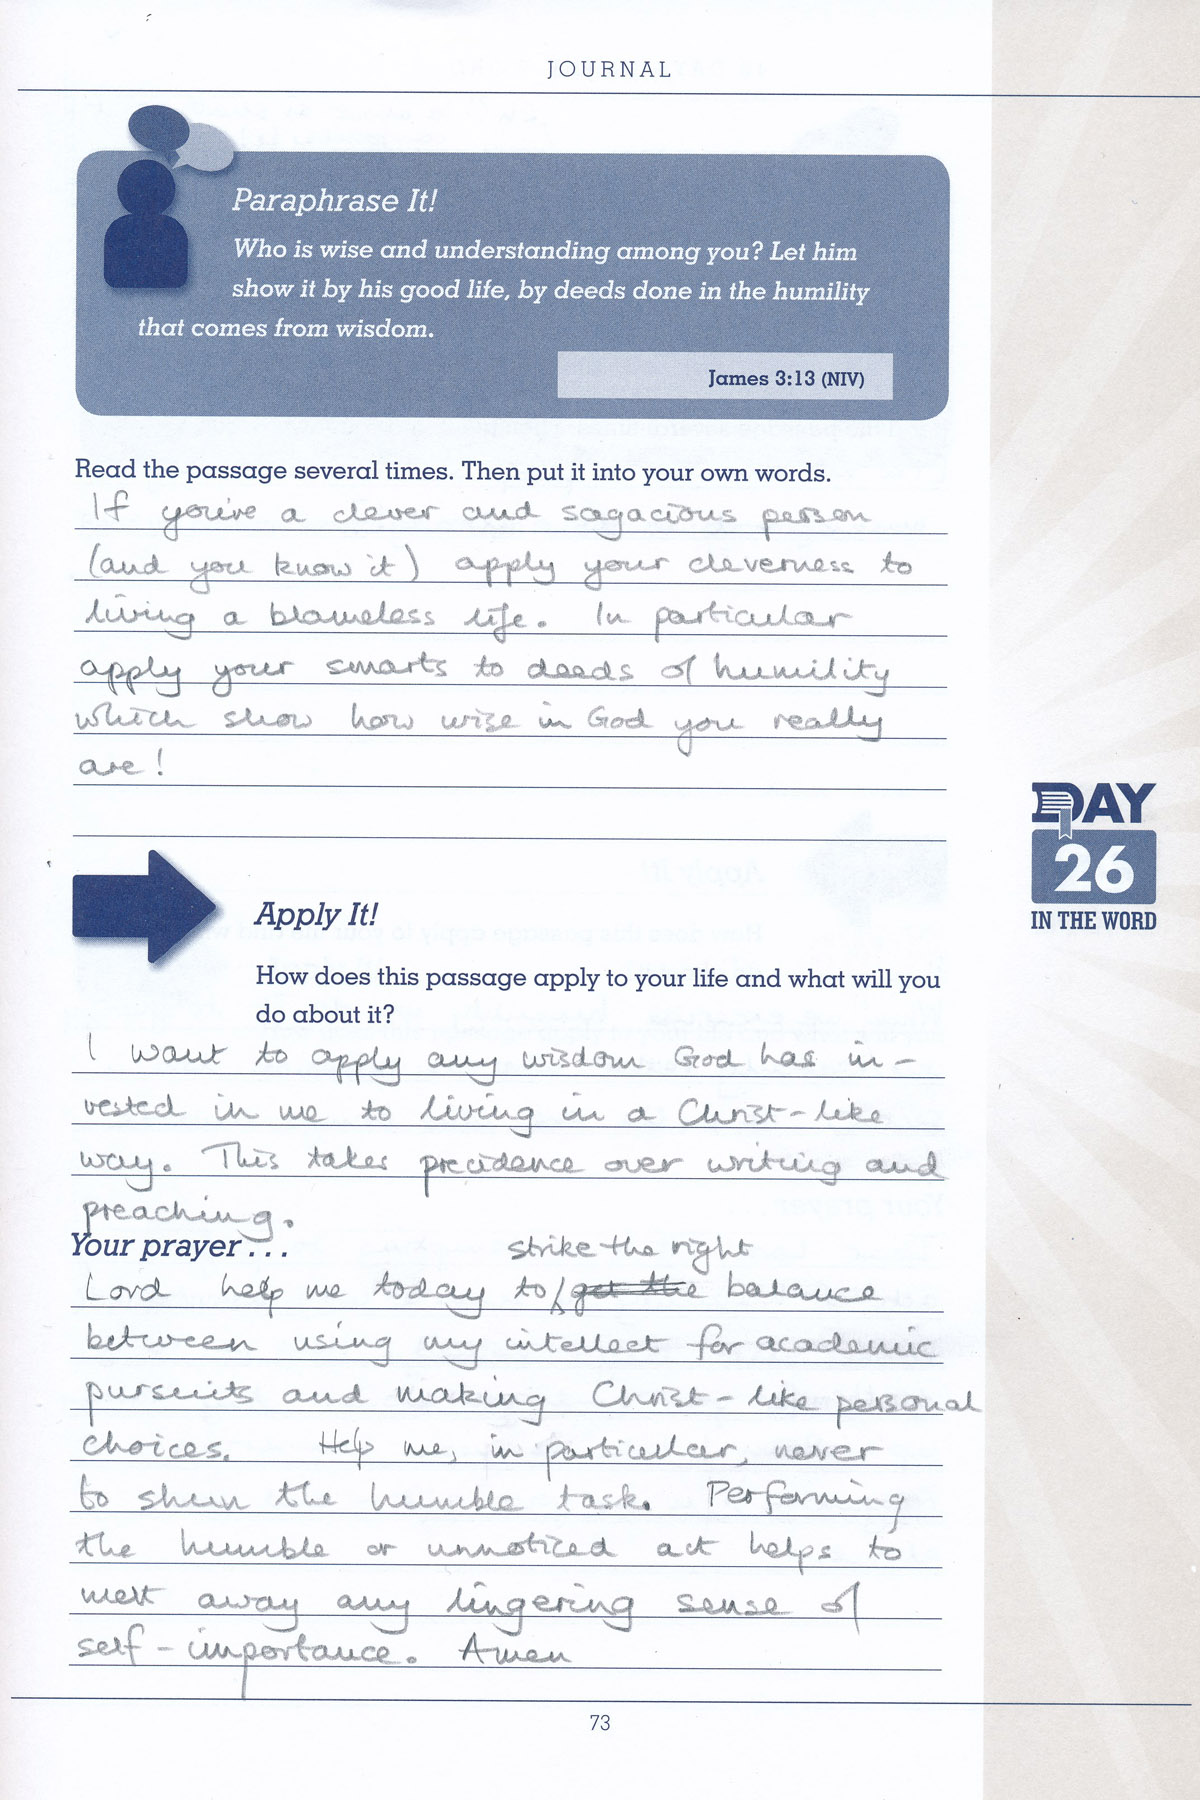 JOURNAL
Paraphrase It!
Who is wise and understanding among you? Let him
show it by his good life, by deeds done in the humility
that comes from wisdom.
James 3:13 (NIV)
Read the passage several times. Then put it into your own words.
If you're a clever and sagacious person
(and you know it) apply your cleverness to
living a blameless life. In particular
apply your smarts to deeds of humility
which show how wise in God you really
are!
DAY
26
IN THE WORD
Apply It!
How does this passage apply to your life and what will you
do about it?
I want to apply any wisdom God has in-
vested in me to living in a Christ-like
way. This takes precidence over writing and
preaching.
Your prayer...
strike the right
Lord help me today to get the balance
between using my intellect for academic
pursuits and making Christ-like personal
choices. Help me, in particular, never
to shun the humble task. Performing
the humble or unnoticed act helps to
melt away any lingering sense of
self-importance. Amen
73